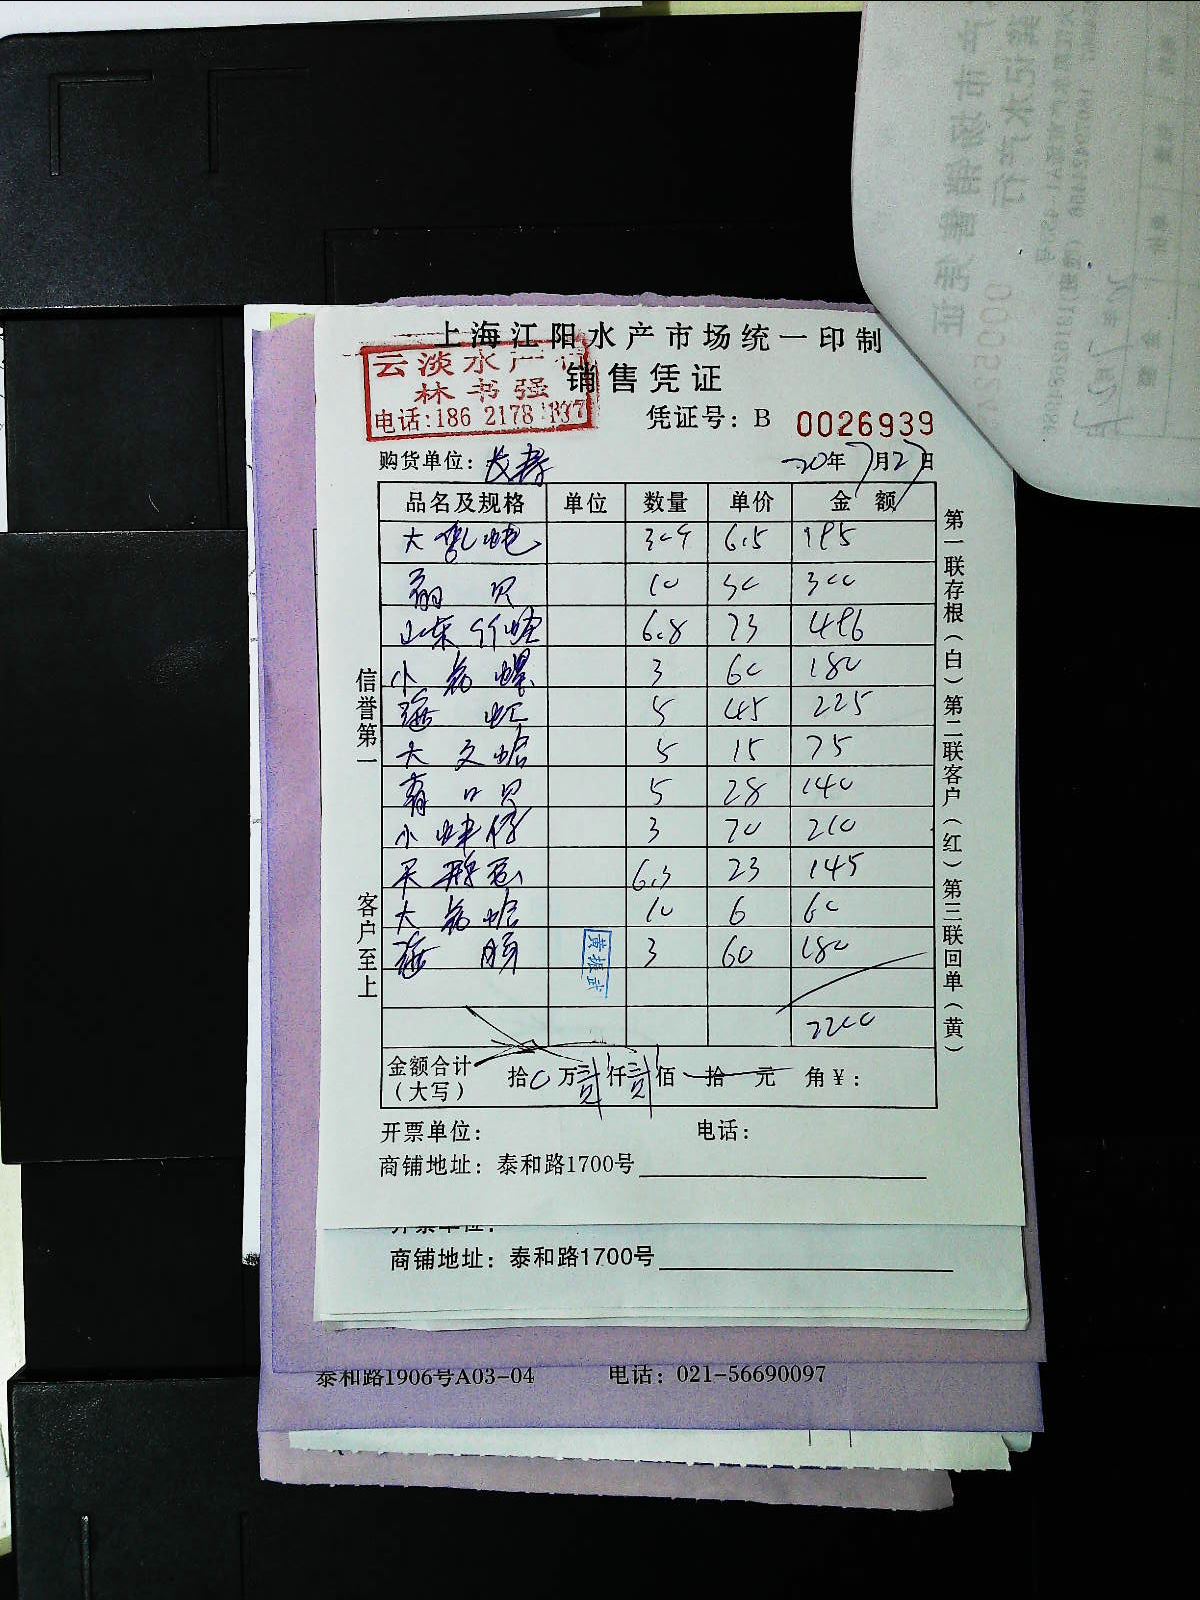 上海江阳水产市场统一印制
销售凭证
云淡水产
林书强
电话:186 2178
凭证号: B 0026939
购货单位: 长寿
20年7月27日
品名及规格 单位 数量 单价 金额
大 6.5 195
贝 10 30 300
山东竹蛏 6.8 73 496
小 螺 3 60 180
海虹 5 45 225
大文蛤 5 15 75
青口贝 5 28 140
小 仔 3 70 210
6.3 23 145
大 蛤 10 6 60
海肠 3 60 180
黄振武
2200
金额合计(大写) 拾0万贰仟贰佰 拾 元 角¥:
开票单位: 电话:
商铺地址: 泰和路1700号
信誉第一
客户至上
第一联存根(白)第二联客户(红)第三联回单(黄)
商铺地址: 泰和路1700号
泰和路1906号A03-04 电话: 021-56690097